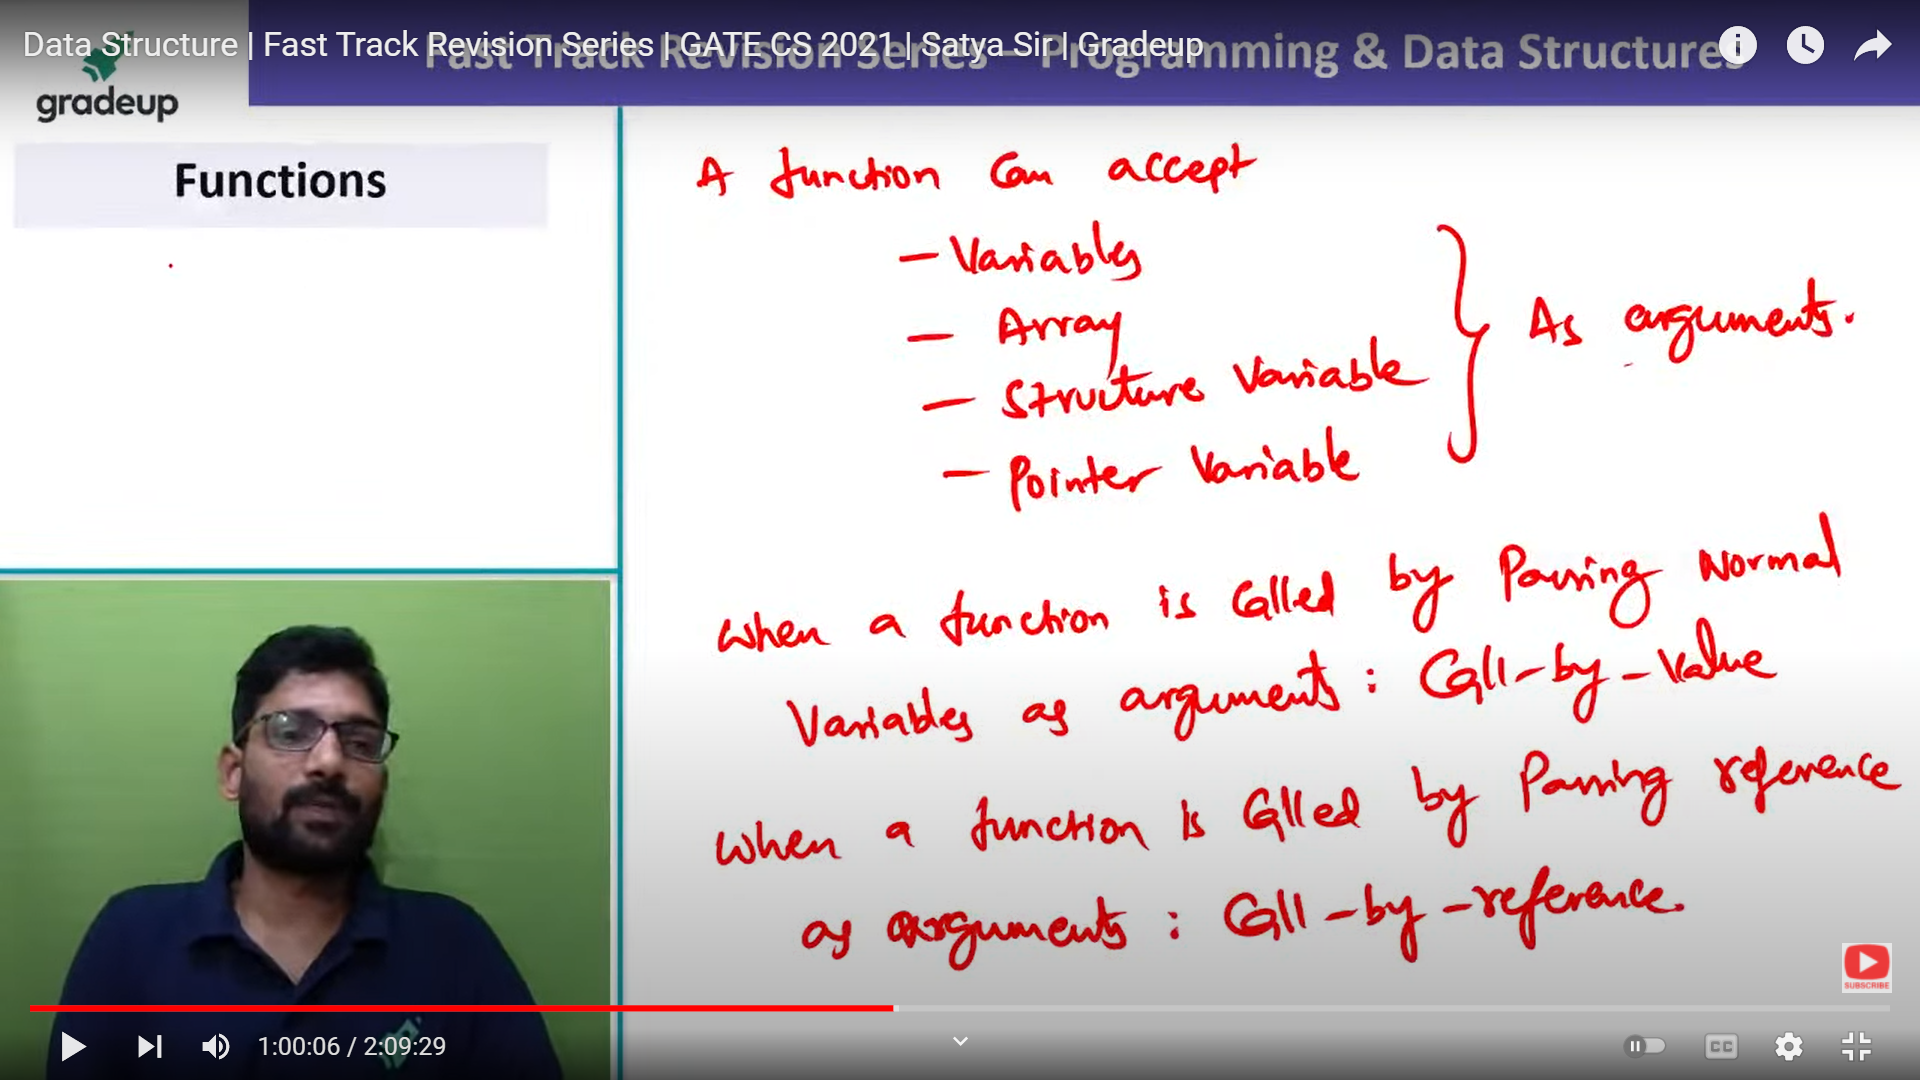 Data Structure | Fast Track Revision Series | GATE CS 2021 | Satya Sir | Gradeup
Fast Track Revision Series – Programming & Data Structures
gradeup
Functions
A function can accept
– Variables
– Array
– Structure Variable
– Pointer Variable
As arguments.
When a function is Called by Passing Normal
Variables as arguments : Call-by-Value
When a function is Called by Passing reference
as arguments : Call-by-reference.
SUBSCRIBE
1:00:06 / 2:09:29
CC